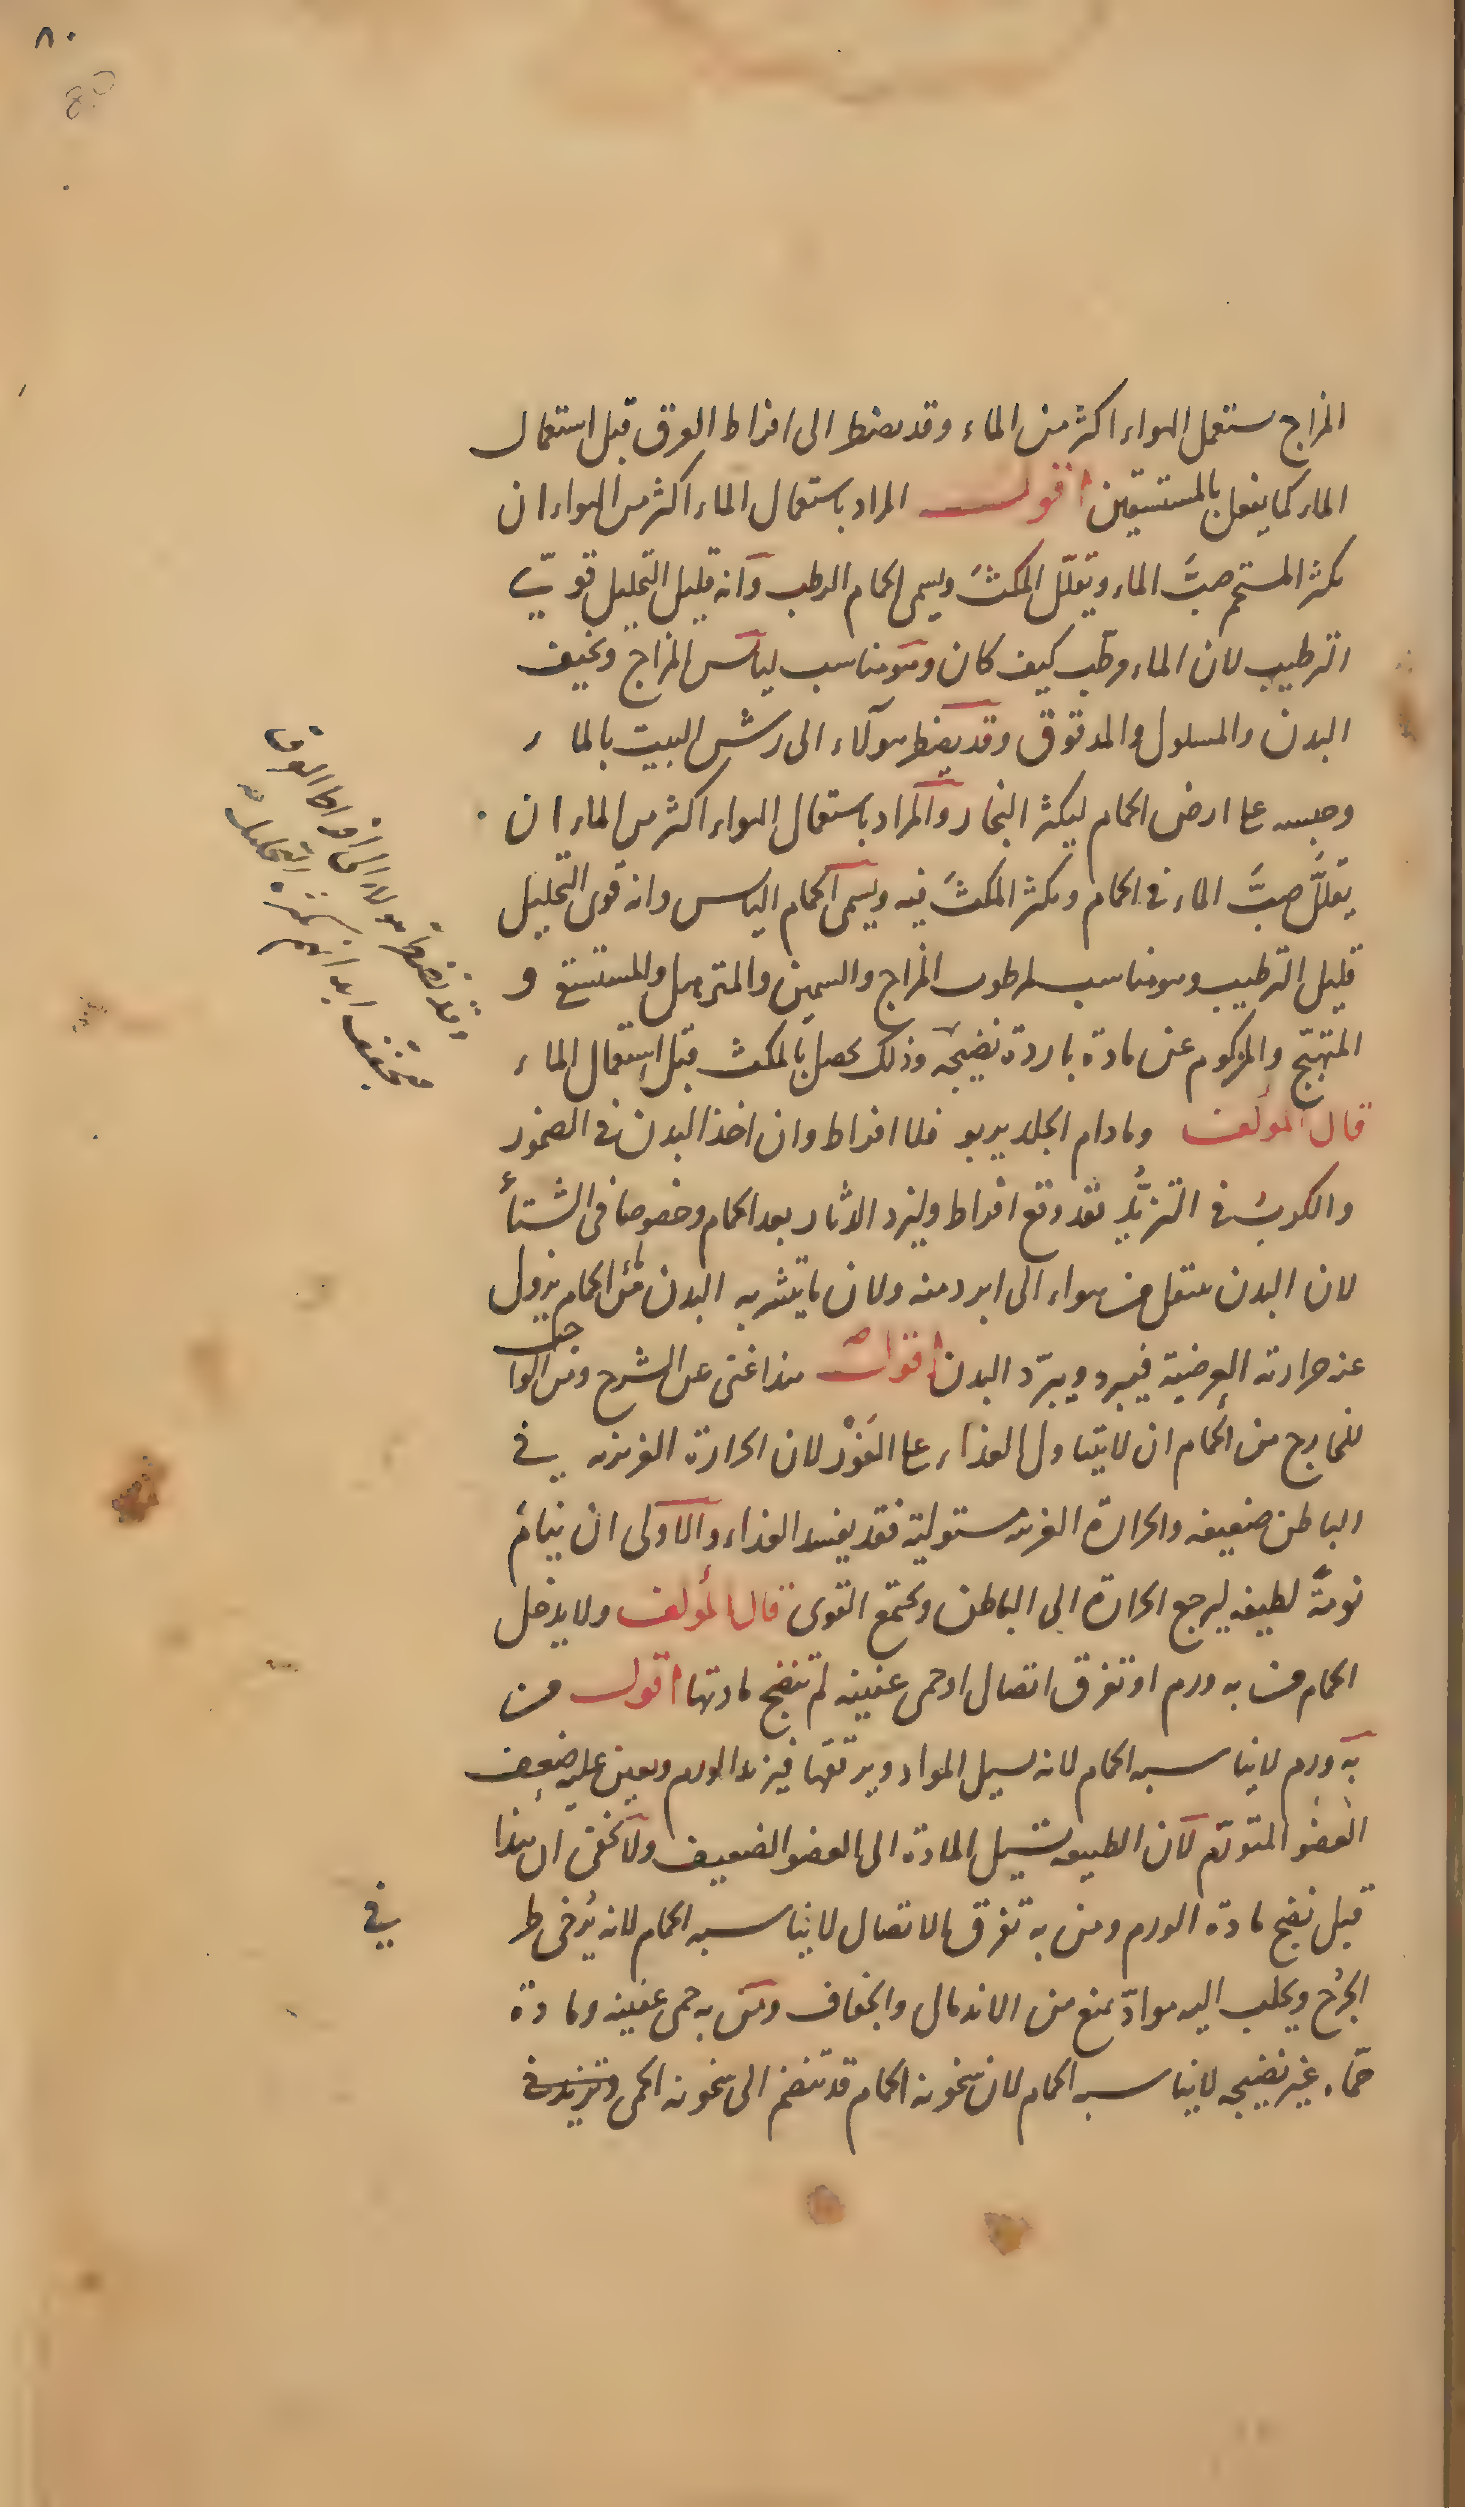 ٨٠
80
المزاج يستعمل الهواء اكثر من الماء وقد يضطر الى افراط العرق قبل استعمال
الماء كما يفعل بالمستسقين اقول المراد باستعمال الماء اكثر من الهواء ان
يكثر المستحم صبَّ الماء ويقلّل المكثَ ويسمى الحمام الرطب وانه قليل التحليل قويّ
الترطيب لان الماء رطب كيف كان وهو مناسب ليابس المزاج ونحيف
البدن والمسلول والمدقوق وقد يضطر هولاء الى رش البيت بالماء
وحبسه على ارض الحمام ليكثر البخار والمراد باستعمال الهواء اكثر من الماء ان
يقلل صبَّ الماء في الحمام ويكثر المكثَ فيه ويسمى الحمام اليابس وانه قوى التحليل
قليل الترطيب وهو مناسب لمرطوب المزاج والسمين والمترهل والمستسقى و
المتهبّج والمزكوم عن مادة باردة نضيجه وذلك يحصل بالمكث قبل استعمال الماء
قال المؤلف ومادام الجلد يربو فلا افراط وان اخذ البدن في الضمور
والكرب في التزيُّد فقد وقع افراط وليزد الدثار بعد الحمام وخصوصا في الشتاء
لان البدن ينتقل من هواء الى ابرد منه ولان ما يتشربه البدن من ماء الحمام يزول
عنه حرارته العرضية فيبرد ويبرّد البدن اقول هذا غنى عن الشرح ومن الواجب
للخارج من الحمام ان لا يتناول الغذاء على الفَوْر لان الحرارة الغريزيه في
الباطن ضعيفه والحرارة الغريبه مستولية فقد يفسد الغذاء والاولى ان ينام
نومةً لطيفه ليرجع الحرارة الى الباطن ويجتمع القوى قال المؤلف ولا يدخل
الحمام من به ورم او تفرق اتصال او حمى عفنيه لم تنضج مادتها اقول من
به ورم لا يناسبه الحمام لانه يسيل المواد ويرققها فيزيد الورم ويعين عليه ضعف
العضو المتورّم لان الطبيعه تسيل المادة الى العضو الضعيف ولا يخفى ان هذا
قبل نضج مادة الورم ومن به تفرق الاتصال لا يناسبه الحمام لانه يُرخى
الجُرح ويجلب اليه موادّ تمنع من الاندمال والجفاف ومن به حمى عفنيه ومادة
حمّاه غير نضيجه لا يناسبه الحمام لان سخونه الحمام قد تنضم الى سخونه الحمى وتزيد في
وقد يضطر هولاء الى افراط العرق
في